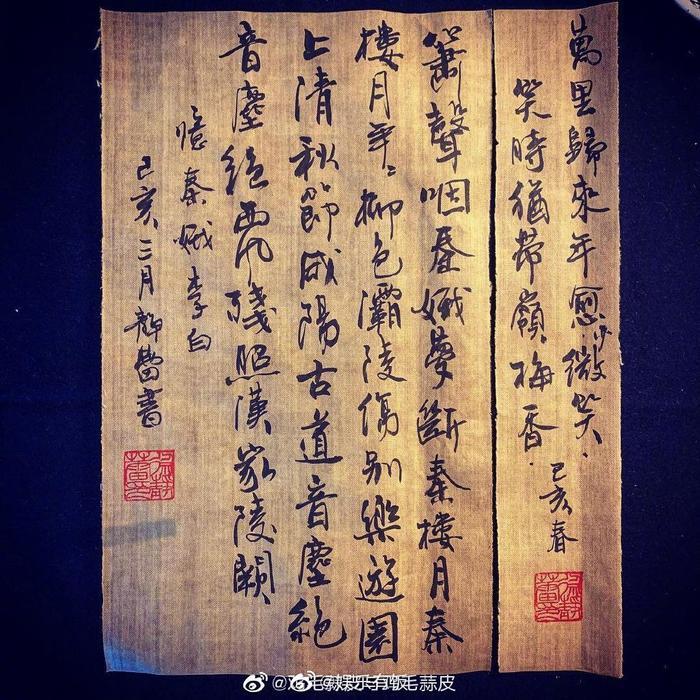 萬里歸來年愈少微笑.
笑時猶帶嶺梅香.
己亥春
徐靜蕾印
簫聲咽秦娥夢斷秦樓月秦
樓月年々柳色灞陵傷別樂遊園
上清秋節咸陽古道音塵絕
音塵絕西風殘照漢家陵闕
憶秦娥李白
己亥三月靜蕾書
徐靜蕾印